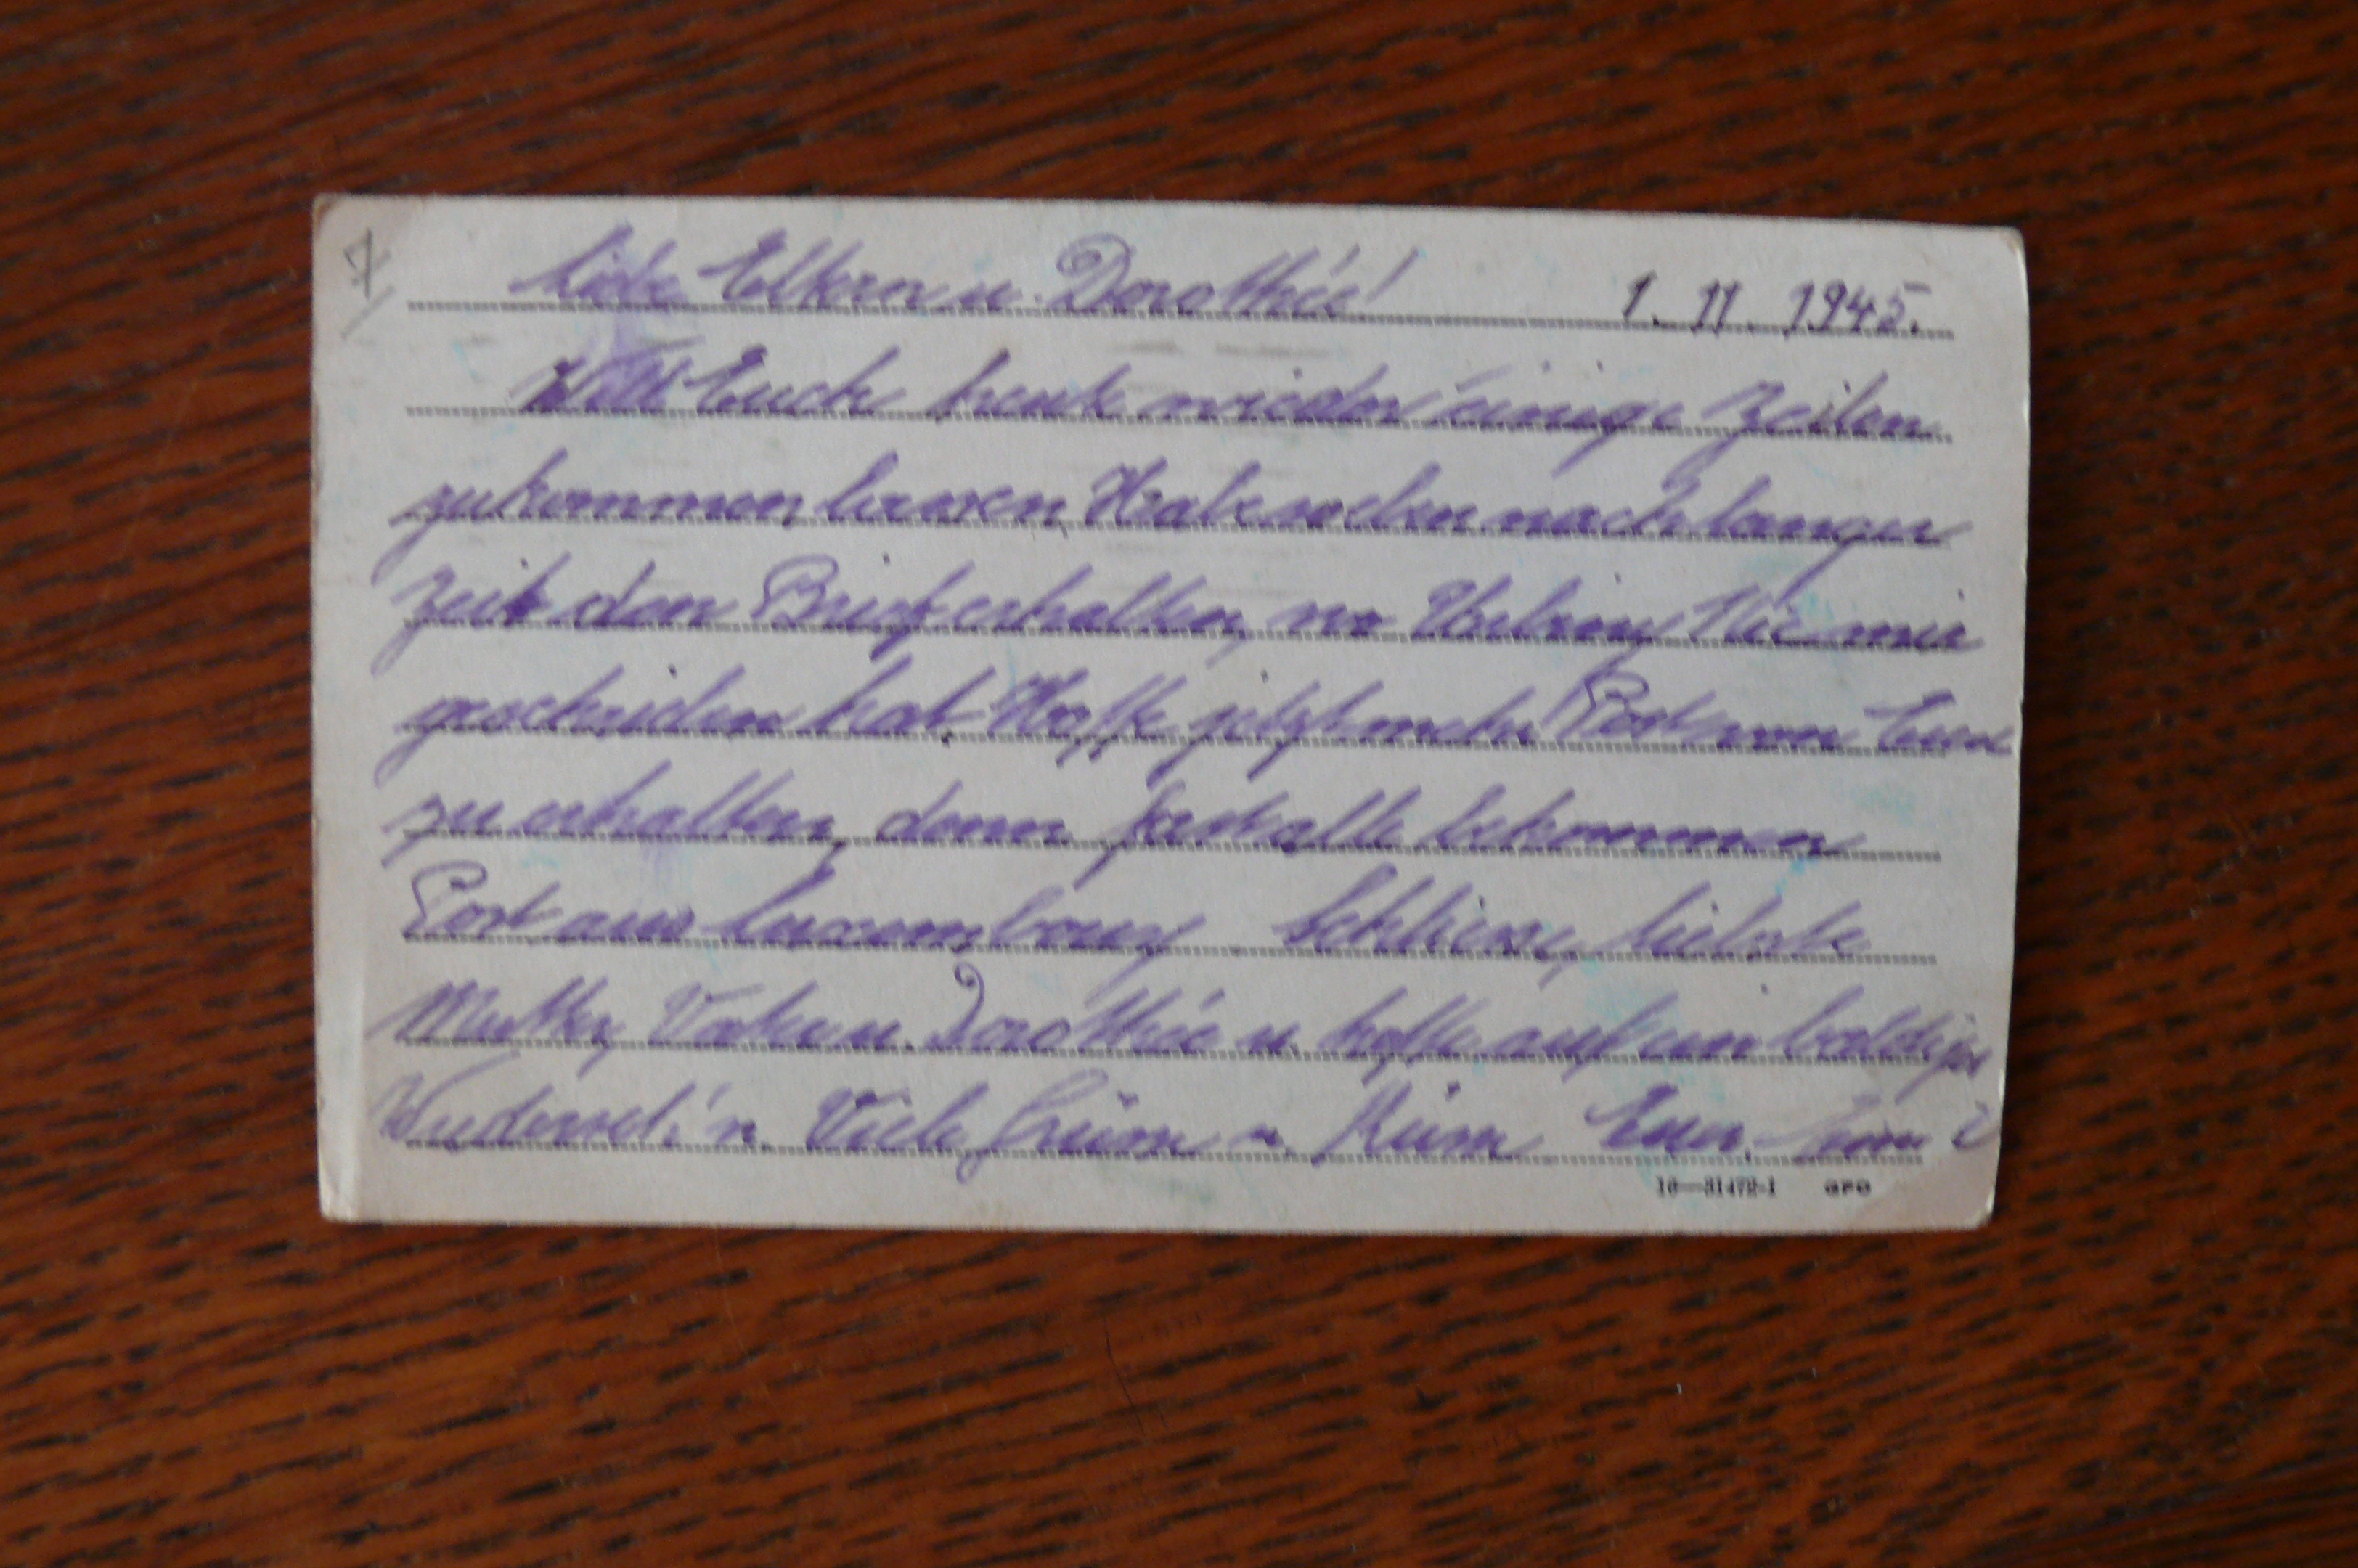 7
Liebe Eltern u. Dorothée! 1. 11. 1945.
Will Euch heute wieder einige Zeilen
zukommen lassen. Habe soeben nach langer
Zeit den Brief erhalten, wo mir
geschrieben hat. Hoffe jetzt mehr Post von Euch
zu erhalten, denn fast alle bekommen
Post aus Luxembourg. Schliesse, liebste
Mutter, Vater u. Dorothée u. hoffe auf ein baldiges
Wiederseh'n. Viele Grüsse u. Küsse Euer
16—31472-1 GPO